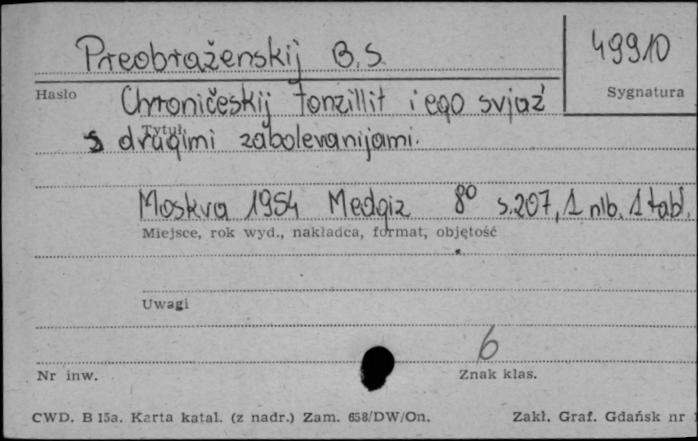 Preobraženskij B.S.
49910
Hasło
Sygnatura
Chroničeskij tonzillit i ego svjaz'
Tytuł
s drugimi zabolevanijami.
Moskva 1954 Medgiz 8º s.207, 1 nlb. 1 tabl.
Miejsce, rok wyd., nakładca, format, objętość
Uwagi
6
Nr inw.
Znak klas.
CWD. B 15a. Karta katal. (z nadr.) Zam. 658/DW/On.
Zakł. Graf. Gdańsk nr